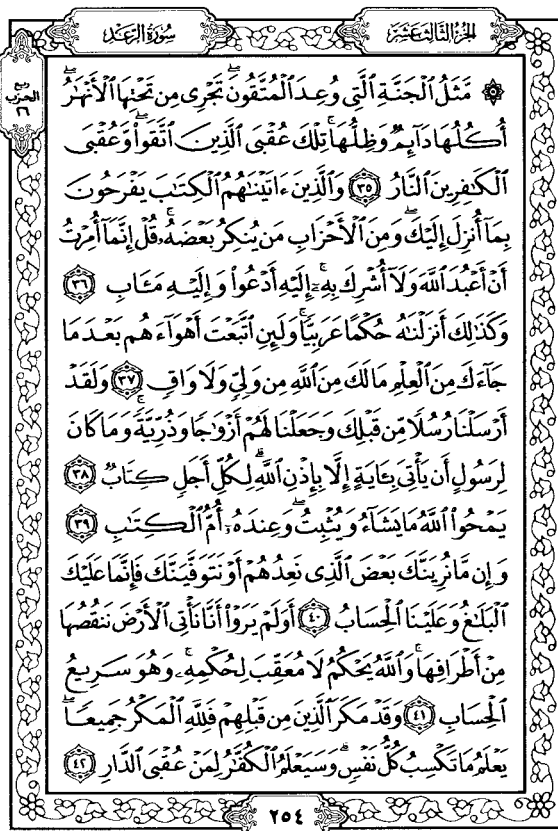 الجزء الثالث عشر
سُورَةُ الرَّعْدِ
ربع
الحزب
٢٦
۞ مَّثَلُ ٱلْجَنَّةِ ٱلَّتِي وُعِدَ ٱلْمُتَّقُونَۖ تَجْرِى مِن تَحْتِهَا ٱلْأَنْهَٰرُۖ
أُكُلُهَا دَآئِمٌ وَظِلُّهَاۚ تِلْكَ عُقْبَى ٱلَّذِينَ ٱتَّقَوا۟ۖ وَّعُقْبَى
ٱلْكَٰفِرِينَ ٱلنَّارُ ٣٥ وَٱلَّذِينَ ءَاتَيْنَٰهُمُ ٱلْكِتَٰبَ يَفْرَحُونَ
بِمَآ أُنزِلَ إِلَيْكَۖ وَمِنَ ٱلْأَحْزَابِ مَن يُنكِرُ بَعْضَهُۥۚ قُلْ إِنَّمَآ أُمِرْتُ
أَنْ أَعْبُدَ ٱللَّهَ وَلَآ أُشْرِكَ بِهِۦٓۚ إِلَيْهِ أَدْعُوا۟ وَإِلَيْهِ مَـَٔابِ ٣٦
وَكَذَٰلِكَ أَنزَلْنَٰهُ حُكْمًا عَرَبِيًّاۚ وَلَئِنِ ٱتَّبَعْتَ أَهْوَآءَهُم بَعْدَ مَا
جَآءَكَ مِنَ ٱلْعِلْمِ مَا لَكَ مِنَ ٱللَّهِ مِن وَلِىٍّ وَلَا وَاقٍ ٣٧ وَلَقَدْ
أَرْسَلْنَا رُسُلًا مِّن قَبْلِكَ وَجَعَلْنَا لَهُمْ أَزْوَٰجًا وَذُرِّيَّةًۚ وَمَا كَانَ
لِرَسُولٍ أَن يَأْتِىَ بِـَٔايَةٍ إِلَّا بِإِذْنِ ٱللَّهِۗ لِكُلِّ أَجَلٍ كِتَابٌ ٣٨
يَمْحُوا۟ ٱللَّهُ مَا يَشَآءُ وَيُثْبِتُۖ وَعِندَهُۥٓ أُمُّ ٱلْكِتَٰبِ ٣٩
وَإِن مَّا نُرِيَنَّكَ بَعْضَ ٱلَّذِى نَعِدُهُمْ أَوْ نَتَوَفَّيَنَّكَ فَإِنَّمَا عَلَيْكَ
ٱلْبَلَٰغُ وَعَلَيْنَا ٱلْحِسَابُ ٤٠ أَوَلَمْ يَرَوْا۟ أَنَّا نَأْتِى ٱلْأَرْضَ نَنقُصُهَا
مِنْ أَطْرَافِهَاۚ وَٱللَّهُ يَحْكُمُ لَا مُعَقِّبَ لِحُكْمِهِۦۚ وَهُوَ سَرِيعُ
ٱلْحِسَابِ ٤١ وَقَدْ مَكَرَ ٱلَّذِينَ مِن قَبْلِهِمْ فَلِلَّهِ ٱلْمَكْرُ جَمِيعًاۖ
يَعْلَمُ مَا تَكْسِبُ كُلُّ نَفْسٍۗ وَسَيَعْلَمُ ٱلْكُفَّٰرُ لِمَنْ عُقْبَى ٱلدَّارِ ٤٢
٢٥٤